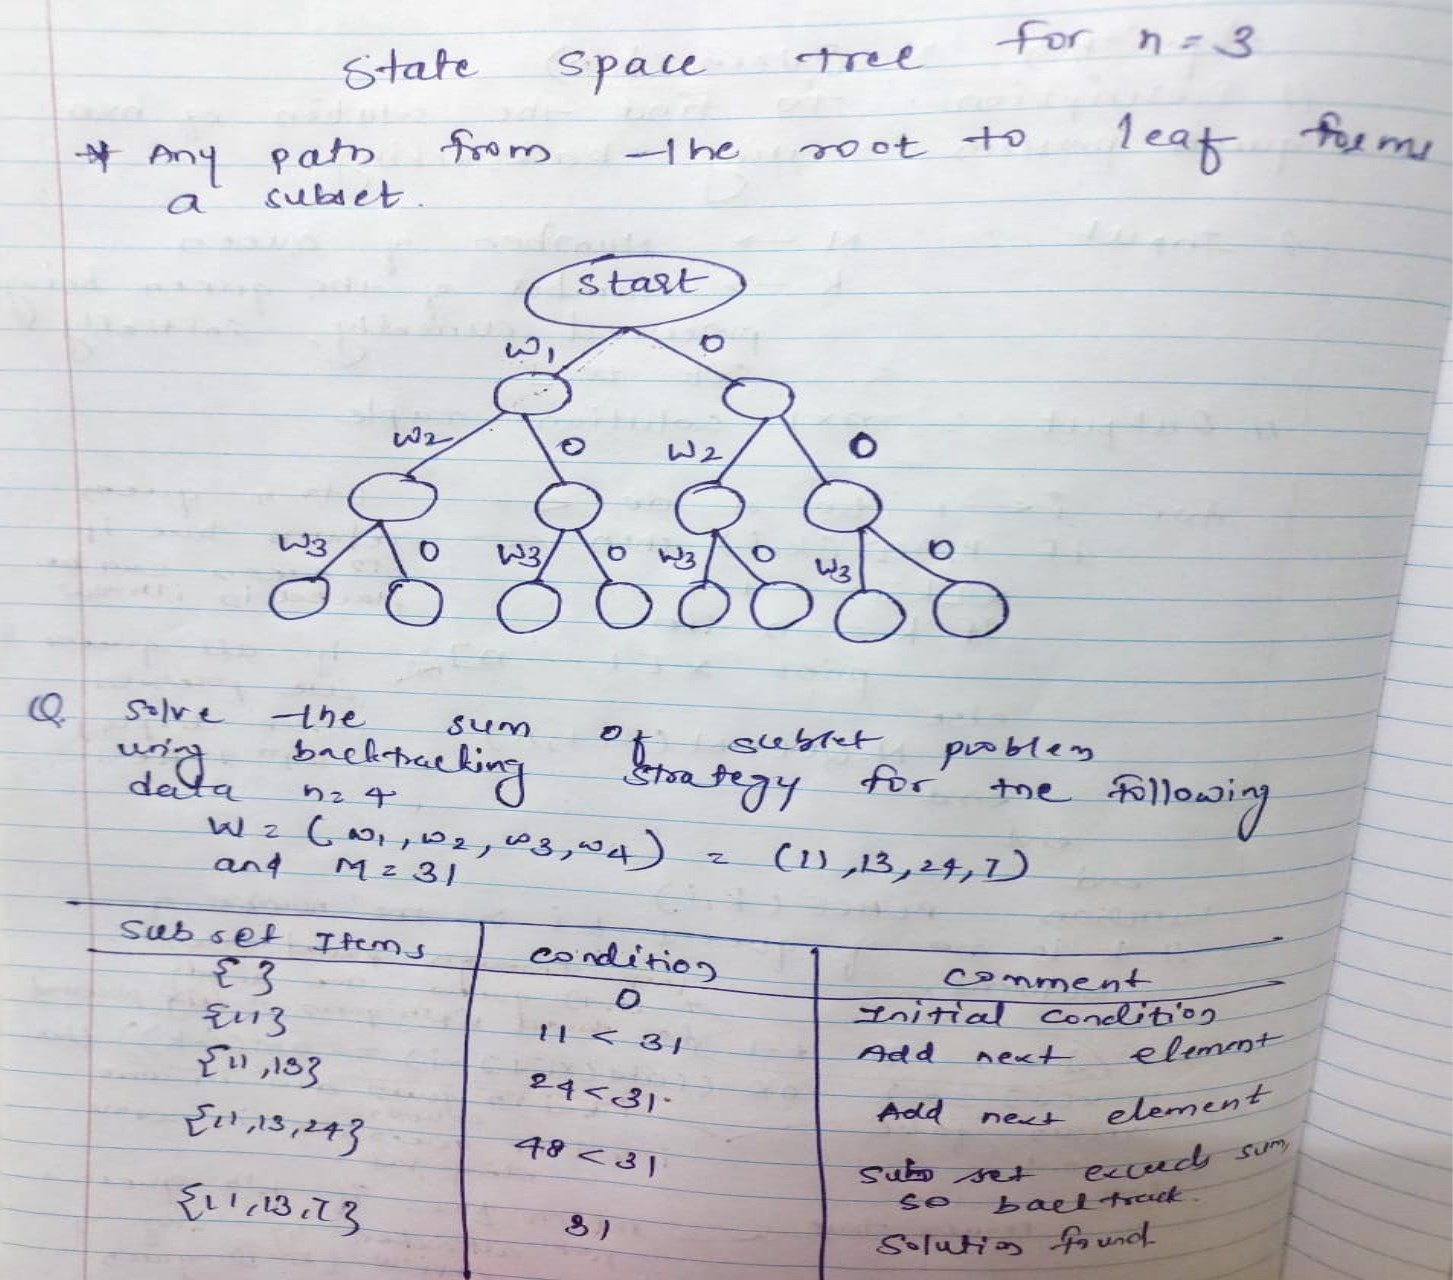 State space tree for n = 3
* Any path from the root to leaf forms
a subset.
start
w1 0
w2 0 w2 0
w3 0 w3 0 w3 0 w3 0
Q. Solve the sum of subset problem
using backtracking strategy for the following
data n = 4
W = (w1, w2, w3, w4) = (11, 13, 24, 7)
and M = 31
Subset Items condition comment
{ } 0 Initial condition
{11} 11 < 31 Add next element
{11, 13} 24 < 31. Add next element
{11, 13, 24} 48 < 31 Sub set exceeds sum,
so backtrack.
{11, 13, 7} 31 Solution found